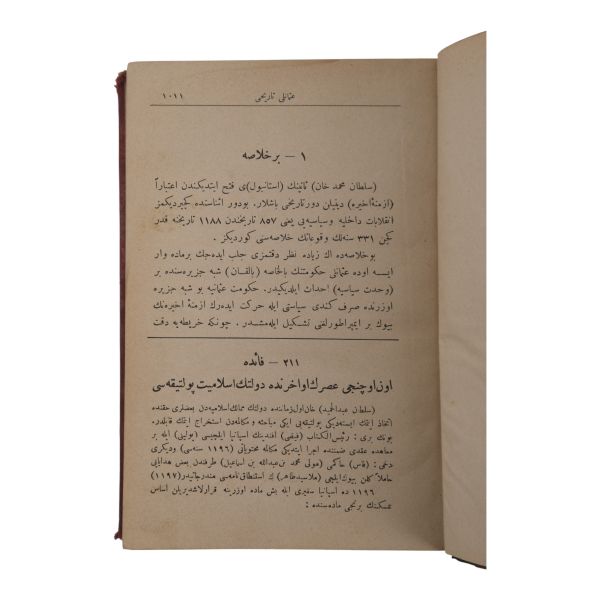 عثمانلی تاریخی ١٠١١
١ — بر خلاصه
(سلطان محمد خان) ثانینك (استانبول)ی فتح ایتدیكندن اعتباراً
(ازمنهٔ اخیره) دینیلن دور تاریخی باشلار. بو دور اثناسنده كچیردیكمز
انقلابات داخلیه و سیاسیه‌یی یعنی ٨٥٧ تاریخندن ١١٨٨ تاریخنه قدر
كچن ٣٣١ سنه‌لك وقوعاتك خلاصه‌سنی كوردیكز.
بو خلاصه‌ده اك زیاده نظر دقتمزی جلب ایده‌جك بر ماده وار
ایسه اوده عثمانلی حكومتنك بالخاصه (بالقان) شبه جزیره‌سنده بر
(وحدت سیاسیه) احداث ایلدیكیدر. حكومت عثمانیه بو شبه جزیره
اوزرنده صرف كندی سیاستی ایله حركت ایده‌رك ازمنهٔ اخیره‌نك
بیوك بر ایمپراطورلغنی تشكیل ایله‌مشدر. چونكه خریطه‌یه دقت
٢١١ — فائده
اون اوچنجی عصرك اواخرنده دولتك اسلامیت پولتیقه‌سی
(سلطان عبدالحمید) خان اول زماننده دولتك ممالك اسلامیه‌دن بعضلری حقنده
اتخاذ ایتمك ایسته‌دیكی پولتیقه‌یی ایكی مباحثه و مكالمه‌دن استخراج ایتمك قابلدر.
بونك بری : رئیس‌الكتاب (فیضی) افندینك اسپانیا ایلچیسی (بولینی) ایله بر
معاهده عقدی ضمننده اجرا ایتدیكی مكالمه محتویاتی (١١٩٦ سنه‌سی) ودیكری
دخی : (فاس) حاكمی (مولی محمد بن عبدالله بن اسماعیل) طرفندن بعض هدایایی
حاملاً كلن بیوك ایلچی (ملاسیدطاهر) ك استنطاق نامه‌سی مندرجاتیدر (١١٩٧)
١١٩٦ ده اسپانیا سفیری ایله بش ماده اوزرینه قرارلاشدیریلن اساس
تمسكنك برنجی ماده‌سنده :